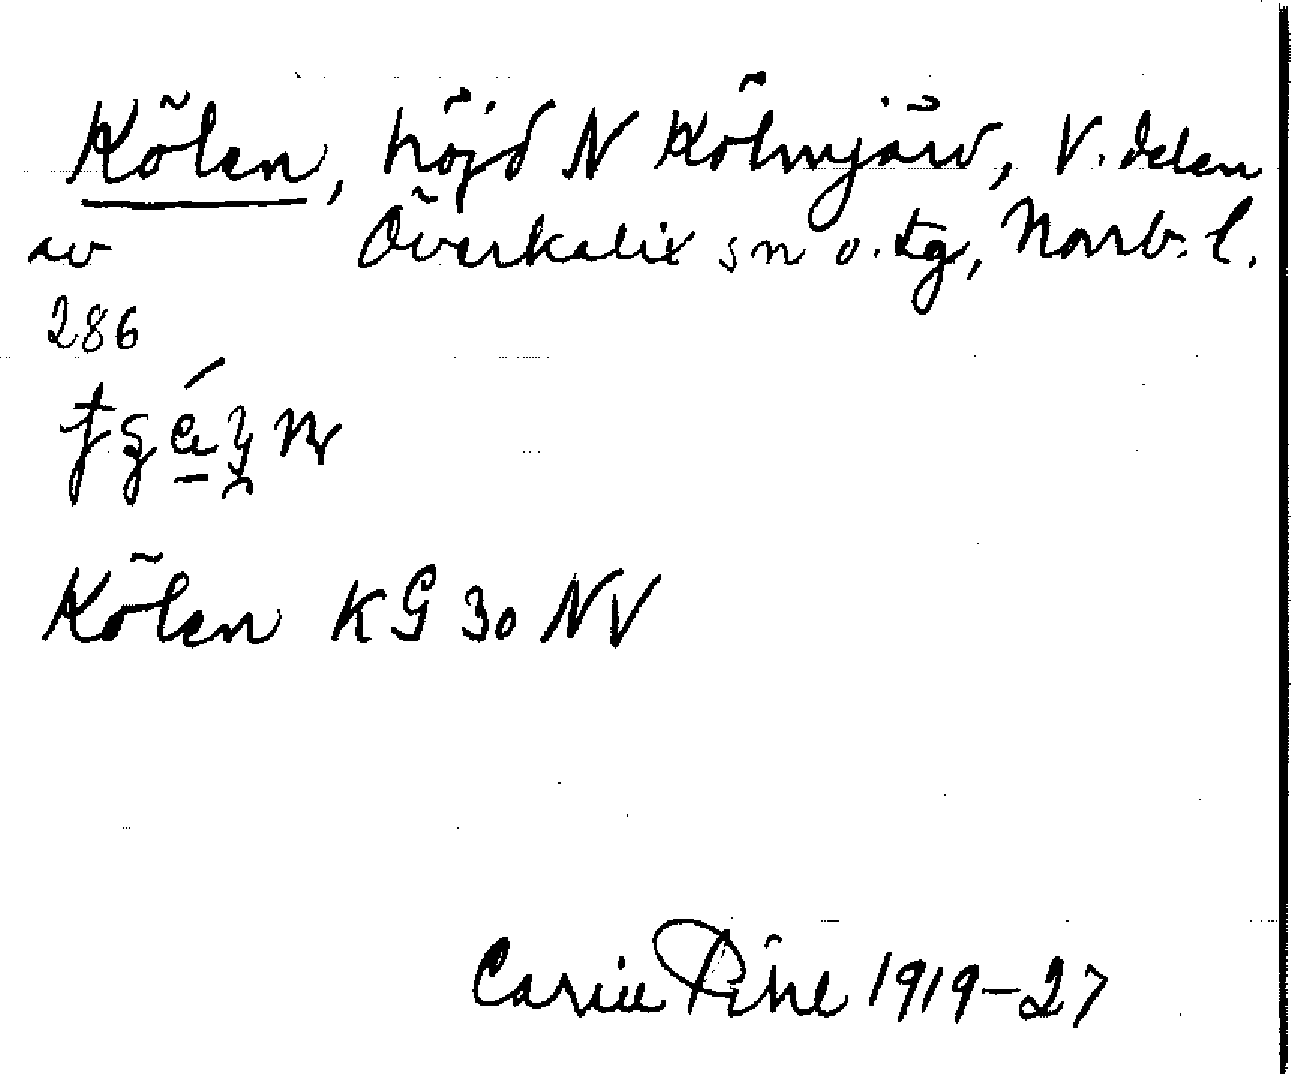 Kölen, höjd N Kölmjärv, V. delen
av Överkalix sn o. tg, Norrb. l.
286
Kölen KG 30 NV
Carin Pihl 1919-27